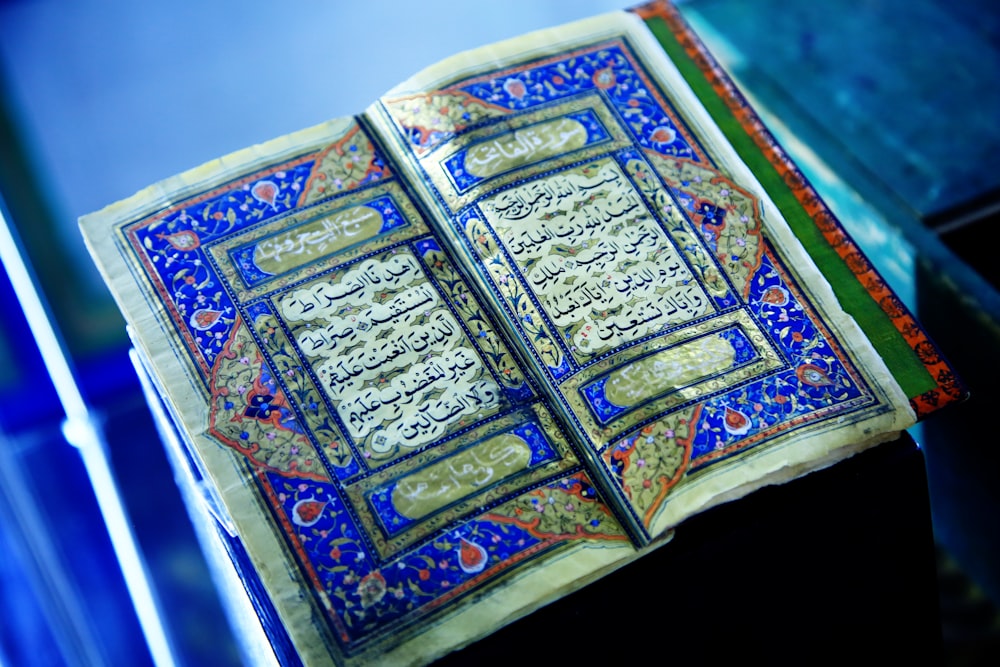 سورة الفاتحة
بسم الله الرحمن الرحيم
الحمد لله رب العلمين
الرحمن الرحيم ملك
يوم الدين إياك نعبد
وإياك نستعين
اهدنا الصراط
المستقيم صراط
الذين أنعمت عليهم
غير المغضوب عليهم
ولا الضالين